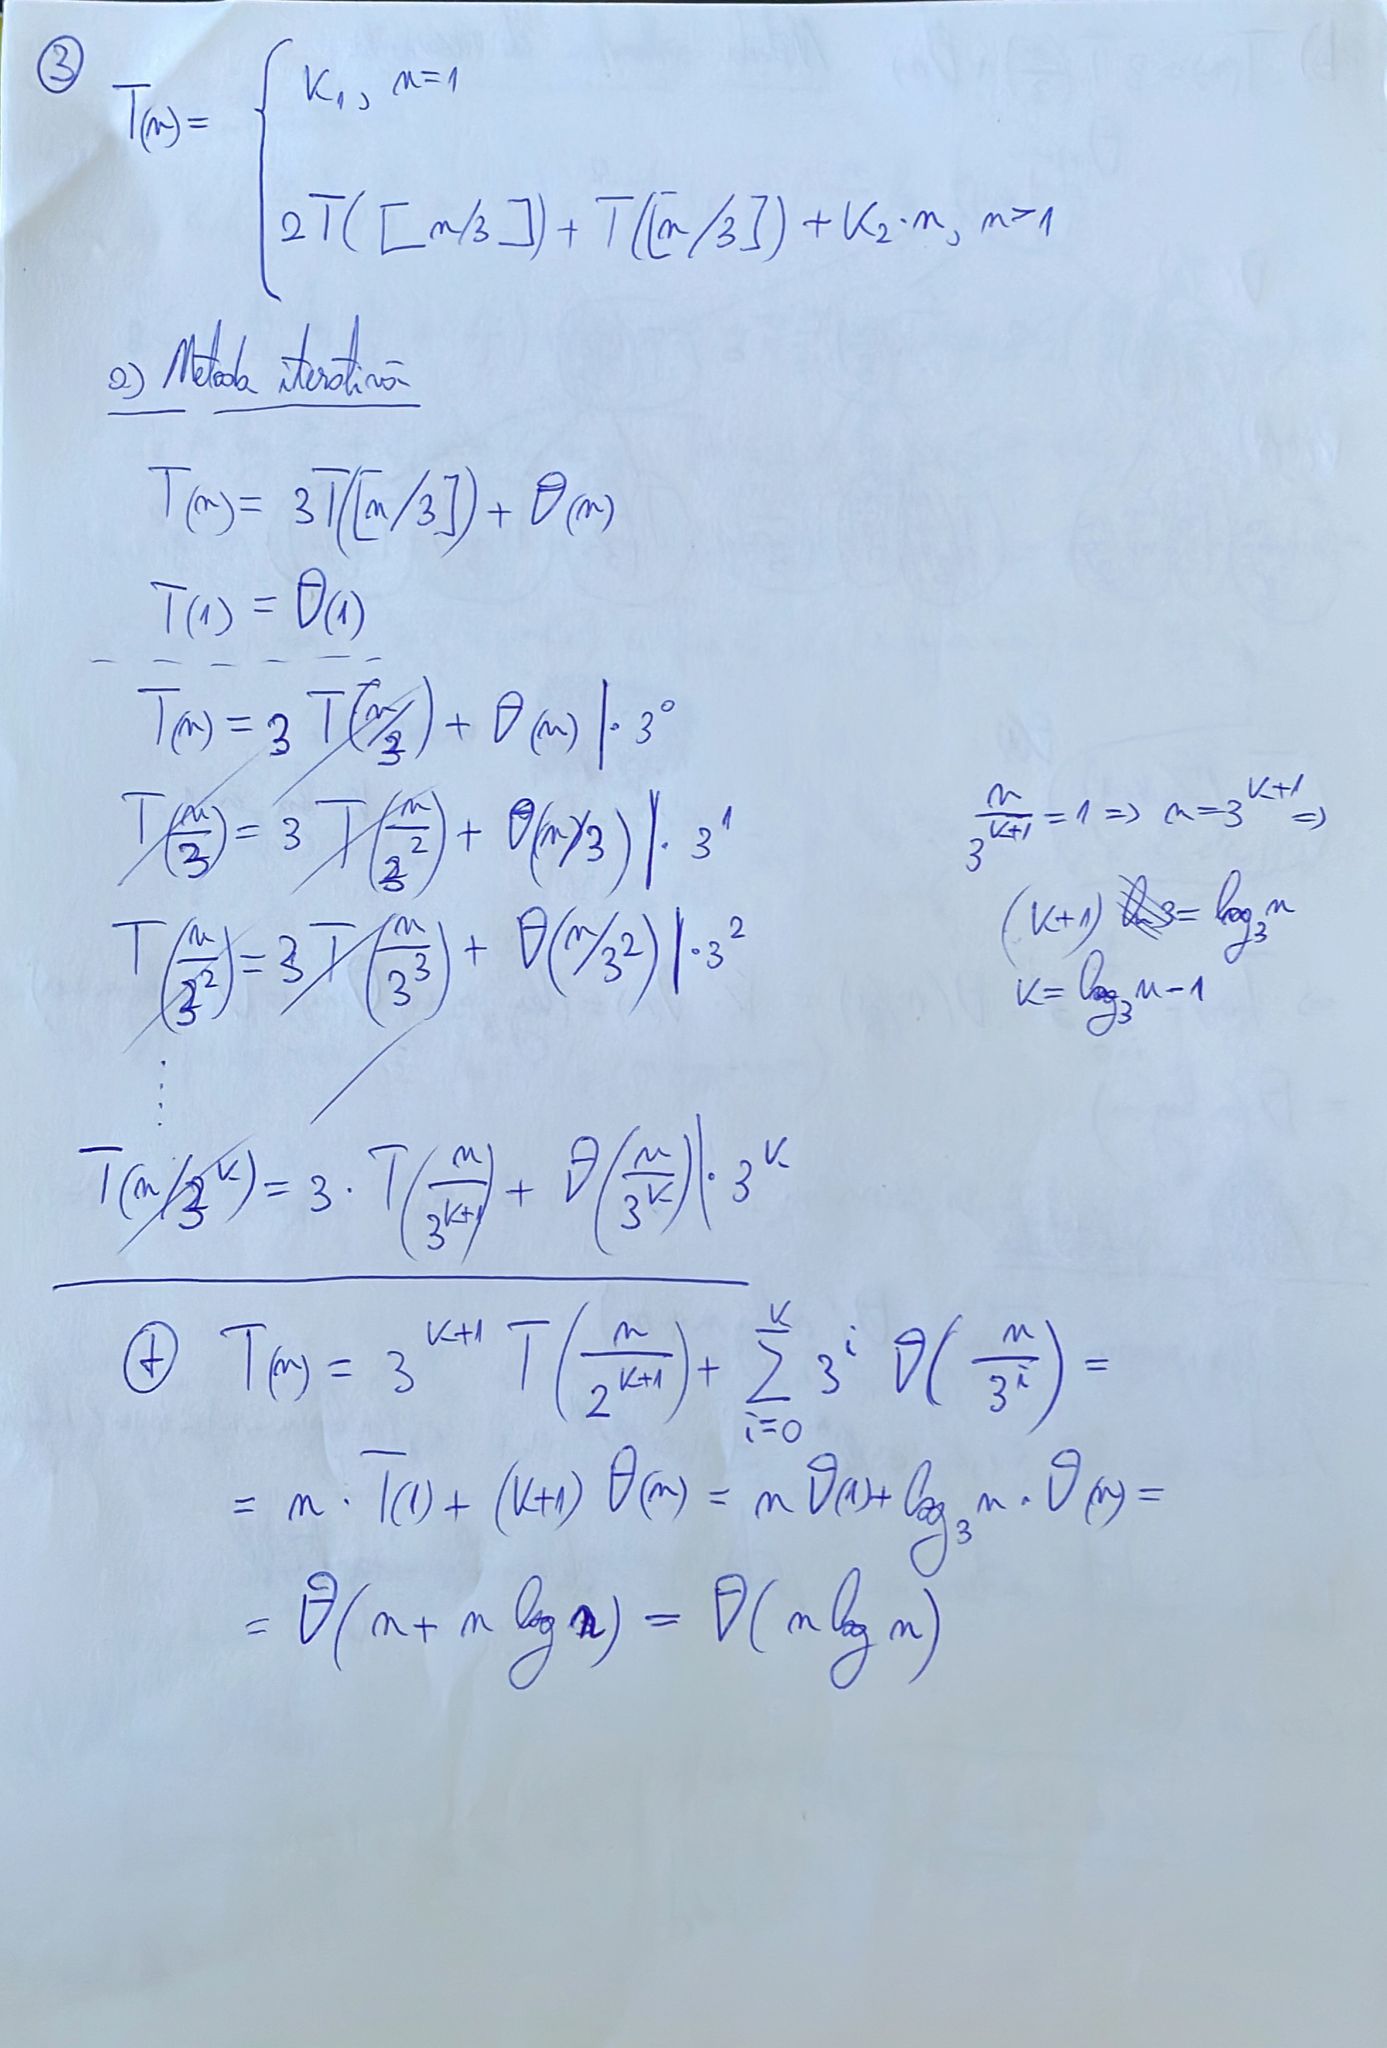 ③
T(n) = { K₁, n=1
2T([n/3]) + T([n/3]) + K₂·n, n>1
a) Metoda iterativă
T(n) = 3T([n/3]) + θ(n)
T(1) = θ(1)
T(n) = 3 T(n/3) + θ(n) |· 3⁰
T(n/3) = 3 T(n/3²) + θ(n/3) |· 3¹
T(n/3²) = 3 T(n/3³) + θ(n/3²) |· 3²
⋮
T(n/3ᵏ) = 3 · T(n/3ᵏ⁺¹) + θ(n/3ᵏ) |· 3ᵏ
n/3ᵏ⁺¹ = 1 => n = 3ᵏ⁺¹ =>
(K+1) = log₃ n
K = log₃ n - 1
⊕ T(n) = 3ᵏ⁺¹ T(n/2ᵏ⁺¹) + Σᵢ₌₀ᴷ 3ⁱ θ(n/3ⁱ) =
= n · T(1) + (K+1) θ(n) = n θ(1) + log₃ n · θ(n) =
= θ(n + n log n) = θ(n log n)